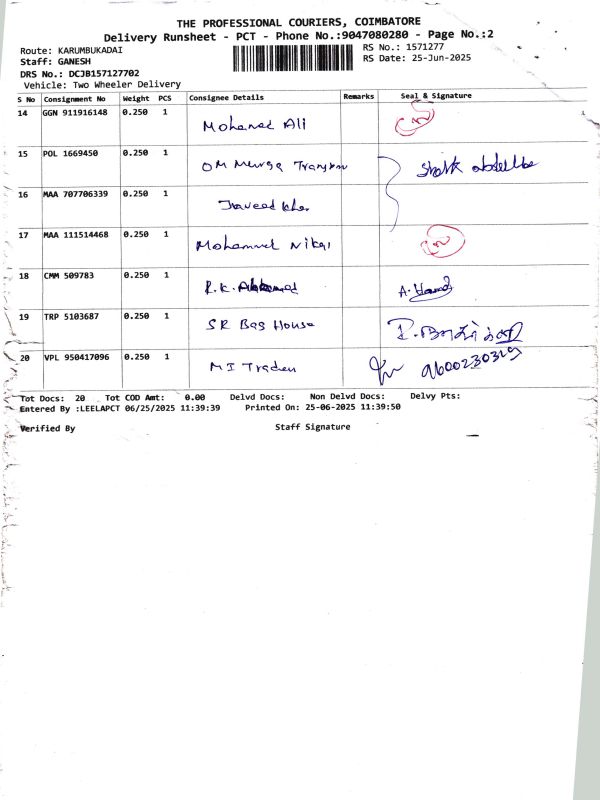 THE PROFESSIONAL COURIERS, COIMBATORE
Delivery Runsheet - PCT - Phone No.:9047080280 - Page No.:2
Route: KARUMBUKADAI
RS No.: 1571277
Staff: GANESH
RS Date: 25-Jun-2025
DRS No.: DCJB157127702
Vehicle: Two Wheeler Delivery
S No Consignment No Weight PCS Consignee Details Remarks Seal & Signature
14 GGN 911916148 0.250 1 Mohamed Ali
15 POL 1669450 0.250 1 OM
16 MAA 707706339 0.250 1
17 MAA 111514468 0.250 1 Mohammed
18 CMM 509783 0.250 1 R.K.
19 TRP 5103687 0.250 1 SR Bag House
20 VPL 950417096 0.250 1 MI Traders 9600230329
Tot Docs: 20 Tot COD Amt: 0.00 Delvd Docs: Non Delvd Docs: Delvy Pts:
Entered By :LEELAPCT 06/25/2025 11:39:39 Printed On: 25-06-2025 11:39:50
Verified By Staff Signature